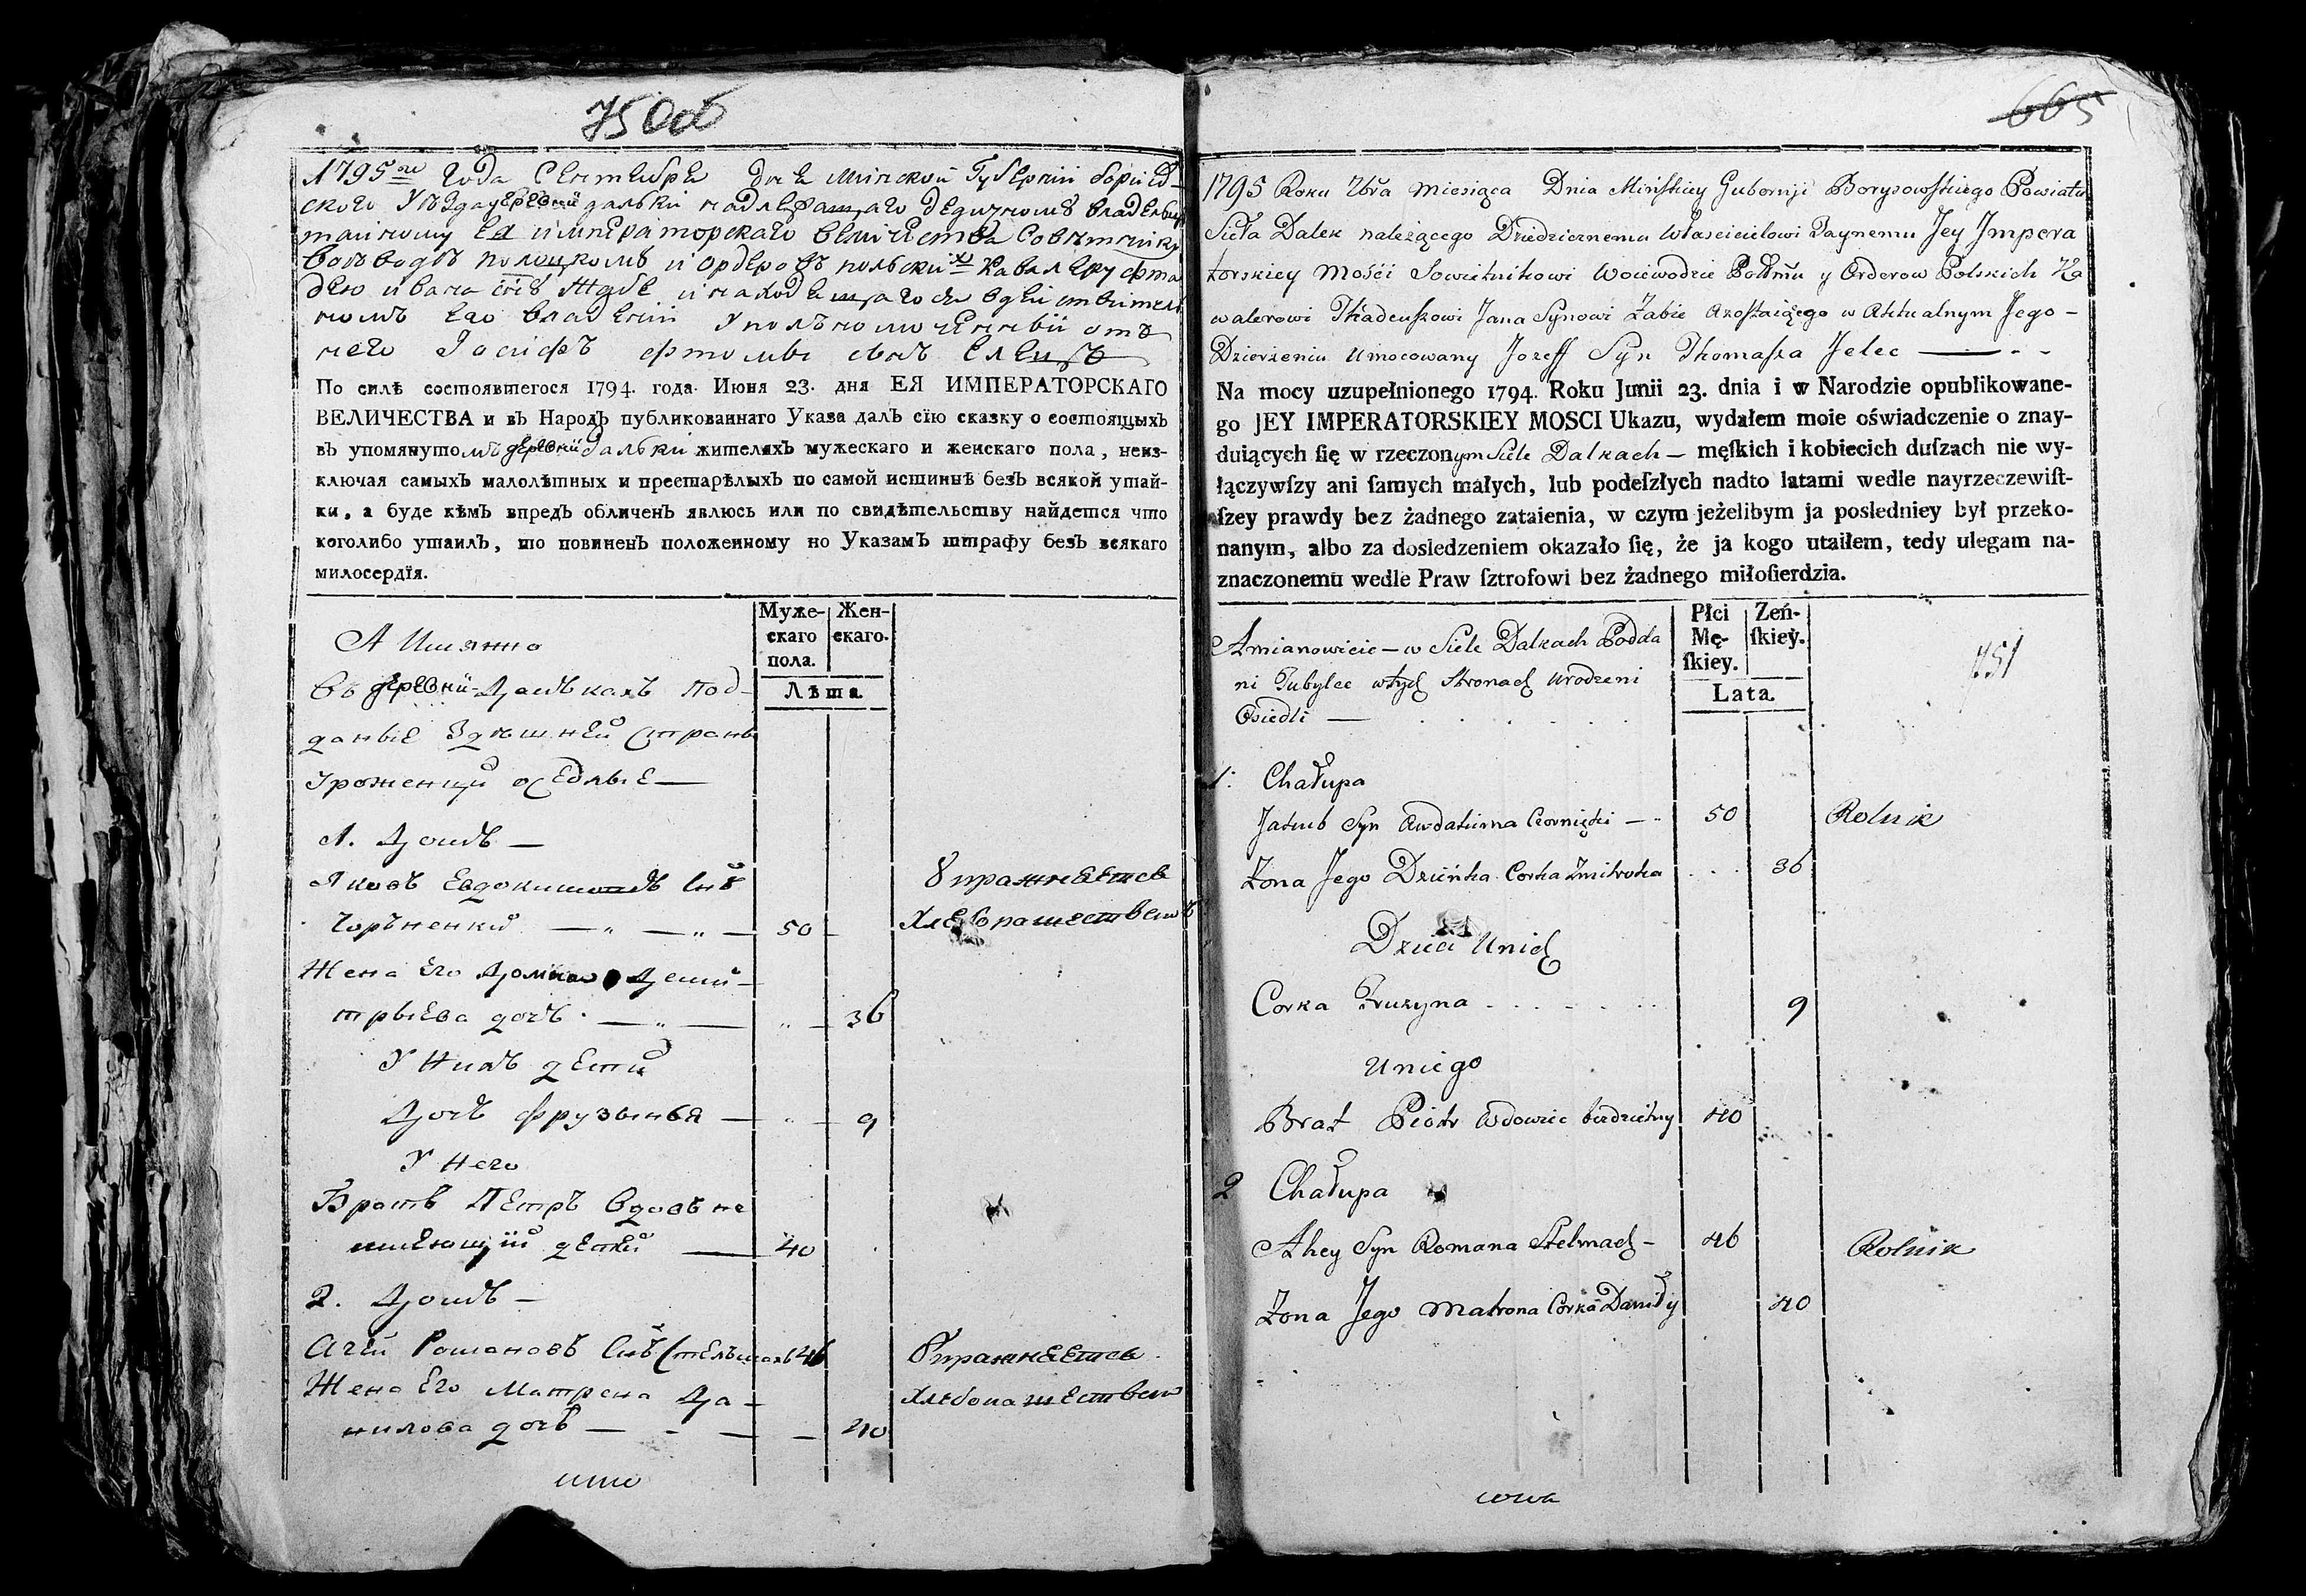 75 Об
1795го года Сентября дня Минской Губернии Борисов-
ского уезда деревни дальки надлежащаго дедичному владельцу
тайному Ея императорскаго величества Советнику
воеводе полоцкому и ордеровъ польских Кавалеру фта
дею ивана сну Жабе и находящагося вдействитель
номъ его владении Уполномоченный отъ
него Иосифъ фтомы сынъ Елецъ
По силѣ состоявшегося 1794. года Июня 23. дня ЕЯ ИМПЕРАТОРСКАГО
ВЕЛИЧЕСТВА и въ Народъ публикованнаго Указа далъ сїю сказку о состоящыхъ
въ упомянутомъ деревни Дальки жителяхъ мужескаго и женскаго пола, неиз-
ключая самыхъ малолѣтныхъ и престарѣлыхъ по самой истиннѣ безъ всякой утай-
ки, а буде кѣмъ впредъ обличенъ явлюсь или по свидѣтельству найдется что
коголибо утаилъ, то повиненъ положенному по Указамъ штрафу безъ всякаго
милосердїя.
Муже-
скаго
пола.
Жен-
скаго.
Лѣта
А Имянно
Въ деревни Далькахъ под-
даные Здешней Страны
Уроженцы оседлые —
1. Домъ —
Яковъ Евдокимовъ Снъ
Чорненкий — 50
Упражняется
Хлебопашествомъ
Жена Его Домна Дми-
трыева дочь — 36
У Нихъ дети
Дочь Фрузыня — 9
У Него
Братъ Петръ Вдовъ не
имеющий детей — 40
2. Домъ —
Агей Романовъ Снъ Стельмахъ 46
Упражняется
Жена Его Матрона Да-
Хлебопашествомъ
нилова дочь — 40
665
1795 Roku 7bra miesiąca Dnia Mińskiey Gubernji Borysowskiego Powiatu
Sieła Dalek należącego Dziedzicznemu Właścicielowi Taynemu Jey Impera
torskiey Mości Sowietnikowi Woiewodzie y Orderow Polskich Ka
walerowi Thadeuszowi Jana Synowi Żabie Azostaiącego w Aktualnym Jego -
Dzierżeniu Umocowany Jozeff Syn Thomasza Jelec —
Na mocy uzupełnionego 1794. Roku Junii 23. dnia i w Narodzie opublikowane-
go JEY IMPERATORSKIEY MOSCI Ukazu, wydałem moie oświadczenie o znay-
duiących ſię w rzeczonym Siele Dalkach — męſkich i kobiecich duſzach nie wy-
łączywſzy ani ſamych małych, lub podeſzłych nadto latami wedle nayrzeczewiſt-
ſzey prawdy bez żadnego zataienia, w czym jeżelibym ja posledniey był przeko-
nanym, albo za dosledzeniem okazało ſię, że ja kogo utaiłem, tedy ulegam na-
znaczonemu wedle Praw ſztrofowi bez żadnego miłoſierdzia.
Płci
Mę-
ſkiey.
Zeń-
ſkiey.
Lata.
751
Amianowicie — w Siele Dalkach Podda
ni Tubylce wtych Stronach Urodzeni
Osiedli —
1: Chałupa
Jakub Syn Awdakima Czornięki — 50 Rolnik
Żona Jego Dziúńka Corka Zmitroka 36
Dzieci Unich
Corka Fruzyna 9
Uniego
Brat Piotr Wdowiec bezdzietny 40
2 Chałupa
Ahey Syn Romana Stelmach - 46 Rolnik
Żona Jego Matrona Corka Daniły 40